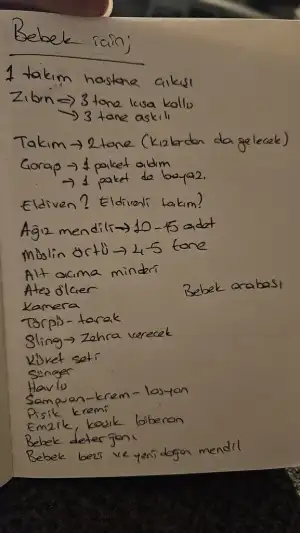 Bebek için;
1 takım hastane çıkışı
Zıbın => 3 tane kısa kollu
→ 3 tane askılı
Takım → 2 tane (kızlardan da gelecek)
Çorap → 1 paket aldım
→ 1 paket de beyaz.
Eldiven? Eldivenli takım?
Ağız mendili → 10-15 adet
Müslin örtü → 4-5 tane
Alt açma minderi
Ateş ölçer
Bebek arabası
Kamera
Törpü-tarak
Sling → Zehra verecek
Küvet seti
Sünger
Havlu
Şampuan-krem-losyon
Pişik kremi
Emzik, kaşık biberon
Bebek deterjanı
Bebek bezi ve yenidoğan mendil